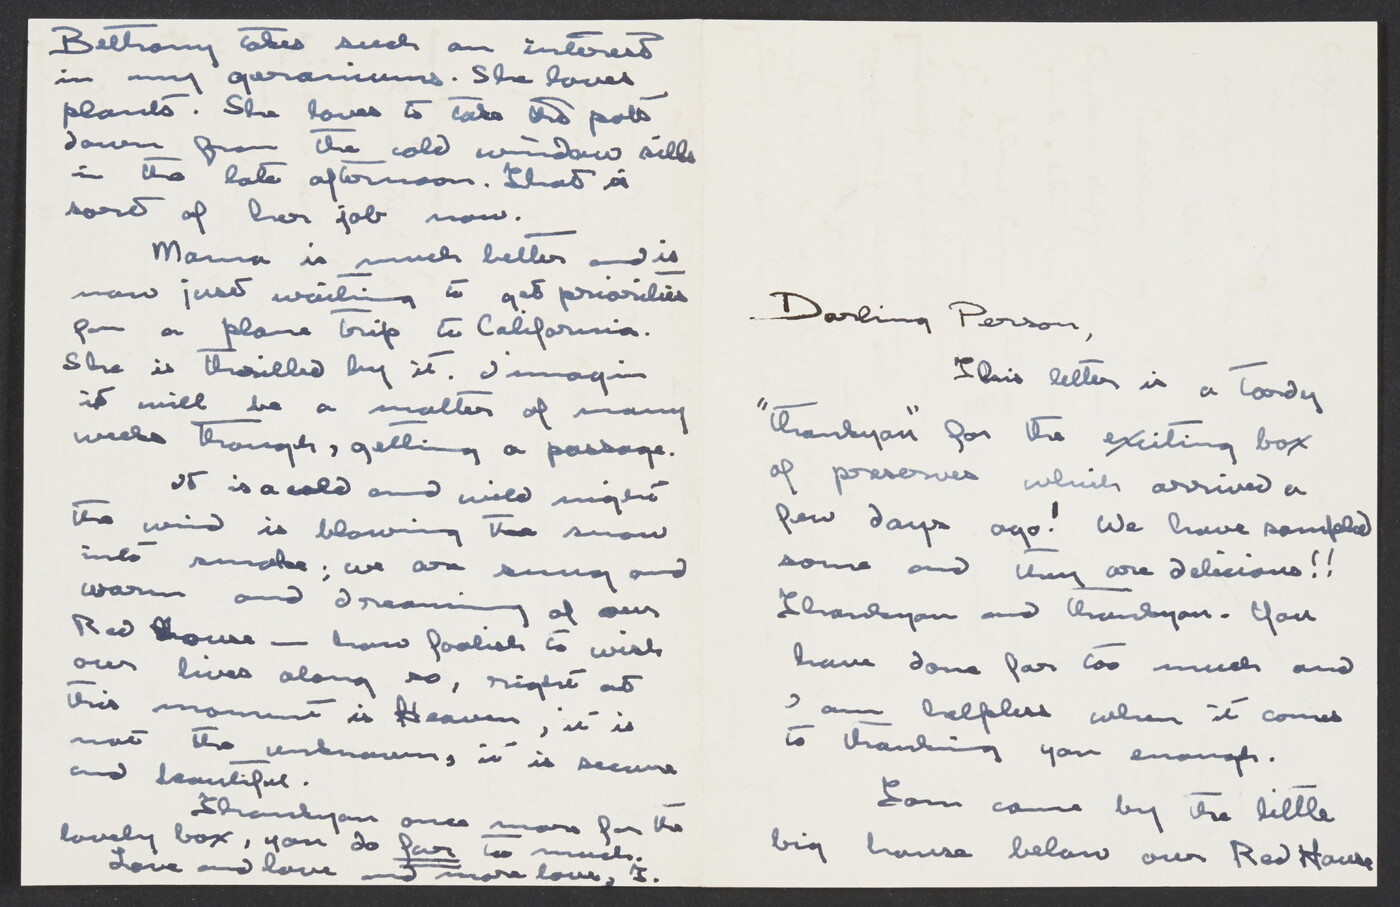 Darling Person,
This letter is a tardy
"thankyou" for the exciting box
of preserves which arrived a
few days ago! We have sampled
some and they are delicious!!
Thankyou and thankyou. You
have done far too much and
I am helpless when it comes
to thanking you enough.
Tom came by the little
big house below our Red House
Bethany takes such an interest
in my geraniums. She loves
plants. She loves to take the pots
down from the cold window sills
in the late afternoon. That is
sort of her job now.
Mama is much better and is
now just waiting to get priorities
for a plane trip to California.
She is thrilled by it. I imagin
it will be a matter of many
weeks though, getting a passage.
It is a cold and wild night
the wind is blowing the snow
into smoke; we are snug and
warm and dreaming of our
Red House — how foolish to wish
our lives along so, right at
this moment is Heaven, it is
not the unknown, it is secure
and beautiful.
Thankyou once more for the
lovely box, you do far too much.
Love and love and more love, T.